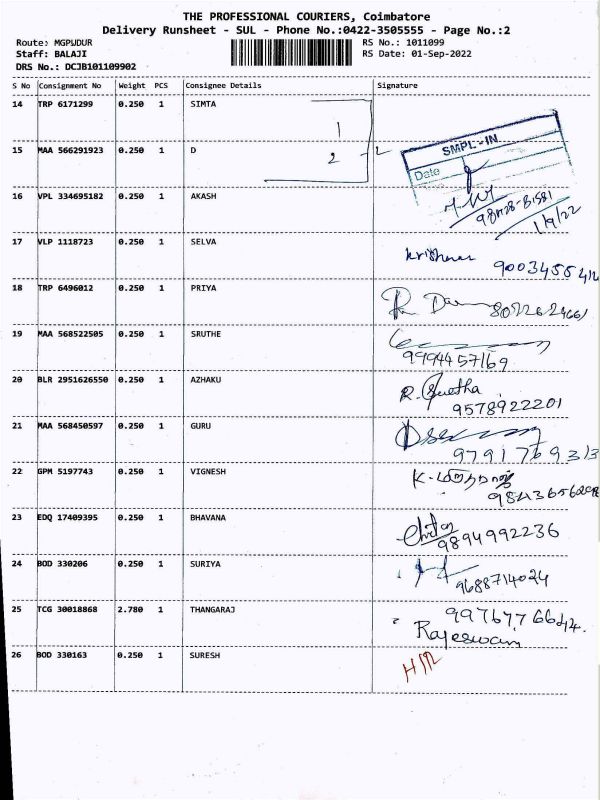 THE PROFESSIONAL COURIERS, Coimbatore
Delivery Runsheet - SUL - Phone No.:0422-3505555 - Page No.:2
Route: MGPWDUR RS No.: 1011099
Staff: BALAJI RS Date: 01-Sep-2022
DRS No.: DCJB101109902
S No Consignment No Weight PCS Consignee Details Signature
14 TRP 6171299 0.250 1 SIMTA
1
15 MAA 566291923 0.250 1 D
2 - 2
SMPL-IN
Date
16 VPL 334695182 0.250 1 AKASH
1/9/22
17 VLP 1118723 0.250 1 SELVA
krishnan
18 TRP 6496012 0.250 1 PRIYA
19 MAA 568522505 0.250 1 SRUTHE
9994457169
20 BLR 2951626550 0.250 1 AZHAKU
R. Suetha
9578922201
21 MAA 568450597 0.250 1 GURU
9791769313
22 GPM 5197743 0.250 1 VIGNESH
23 EDQ 17409395 0.250 1 BHAVANA
9894992236
24 BOD 330206 0.250 1 SURIYA
9688714024
25 TCG 30018868 2.780 1 THANGARAJ
Rajeswari
26 BOD 330163 0.250 1 SURESH